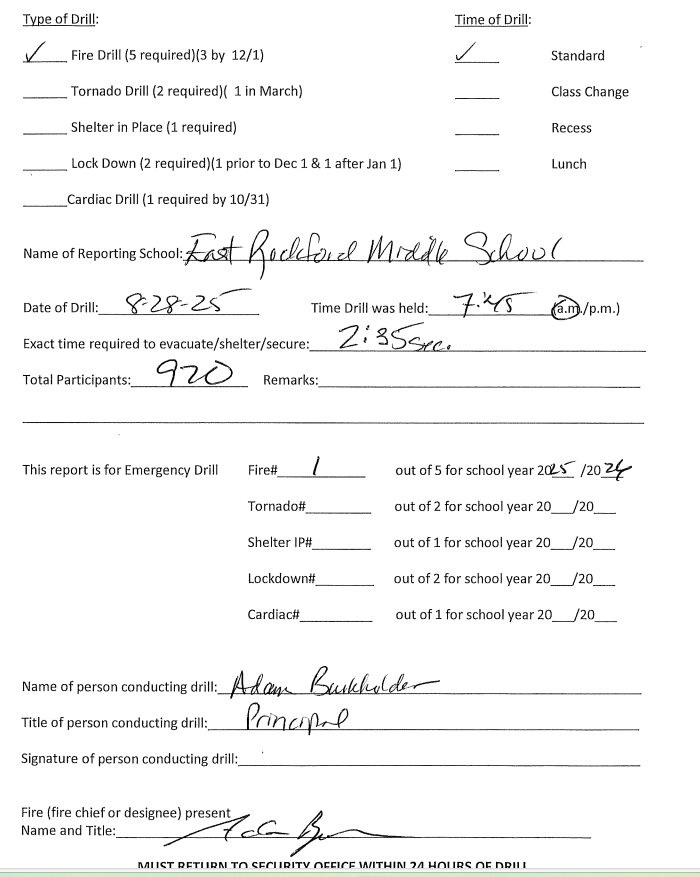 Type of Drill: Time of Drill:
✓ Fire Drill (5 required)(3 by 12/1) ✓ Standard
Tornado Drill (2 required)( 1 in March) Class Change
Shelter in Place (1 required) Recess
Lock Down (2 required)(1 prior to Dec 1 & 1 after Jan 1) Lunch
Cardiac Drill (1 required by 10/31)
Name of Reporting School: East Rockford Middle School
Date of Drill: 8-28-25 Time Drill was held: 7:45 (a.m./p.m.)
Exact time required to evacuate/shelter/secure: 2:35 sec.
Total Participants: 920 Remarks:
This report is for Emergency Drill Fire# 1 out of 5 for school year 2025 /2026
Tornado# out of 2 for school year 20__/20__
Shelter IP# out of 1 for school year 20__/20__
Lockdown# out of 2 for school year 20__/20__
Cardiac# out of 1 for school year 20__/20__
Name of person conducting drill: Adam Burkholder
Title of person conducting drill: Principal
Signature of person conducting drill:
Fire (fire chief or designee) present
Name and Title:
MUST RETURN TO SECURITY OFFICE WITHIN 24 HOURS OF DRILL